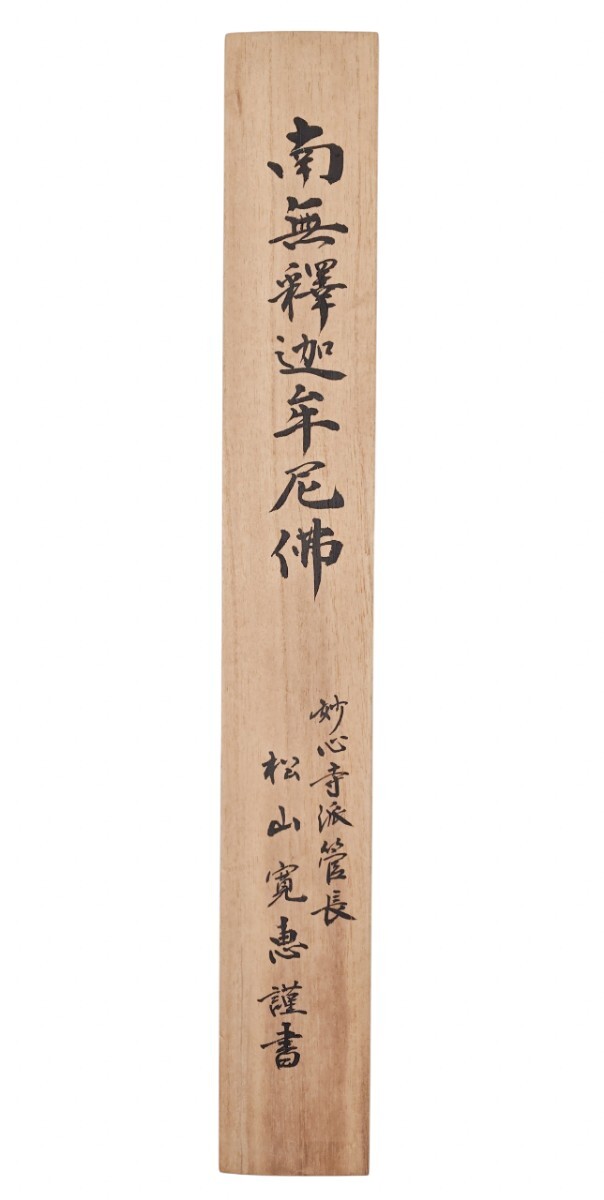 南無釋迦牟尼佛
妙心寺派管長
松山寛惠謹書